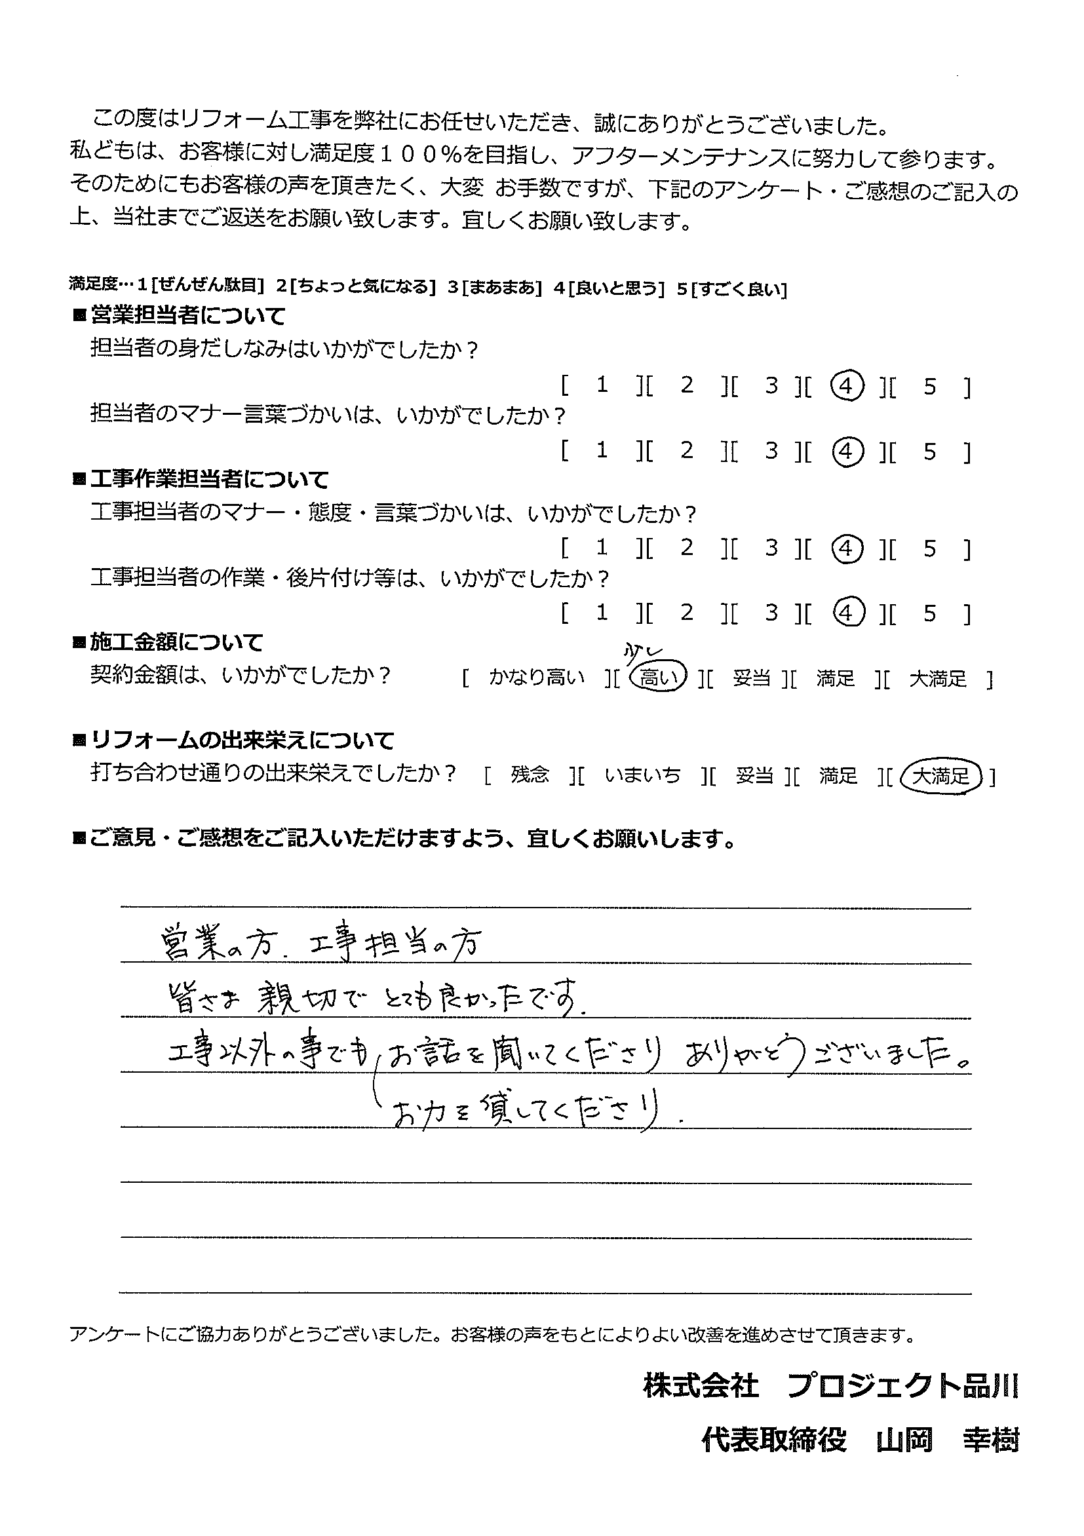 この度はリフォーム工事を弊社にお任せいただき、誠にありがとうございました。
私どもは、お客様に対し満足度１００％を目指し、アフターメンテナンスに努力して参ります。
そのためにもお客様の声を頂きたく、大変 お手数ですが、下記のアンケート・ご感想のご記入の
上、当社までご返送をお願い致します。宜しくお願い致します。
満足度…１[ぜんぜん駄目] ２[ちょっと気になる] ３[まあまあ] ４[良いと思う] ５[すごく良い]
■営業担当者について
担当者の身だしなみはいかがでしたか？
[ 1 ][ 2 ][ 3 ][ 4 ][ 5 ]
担当者のマナー言葉づかいは、いかがでしたか？
[ 1 ][ 2 ][ 3 ][ 4 ][ 5 ]
■工事作業担当者について
工事担当者のマナー・態度・言葉づかいは、いかがでしたか？
[ 1 ][ 2 ][ 3 ][ 4 ][ 5 ]
工事担当者の作業・後片付け等は、いかがでしたか？
[ 1 ][ 2 ][ 3 ][ 4 ][ 5 ]
■施工金額について
少し
契約金額は、いかがでしたか？ [ かなり高い ][ 高い ][ 妥当 ][ 満足 ][ 大満足 ]
■リフォームの出来栄えについて
打ち合わせ通りの出来栄えでしたか？ [ 残念 ][ いまいち ][ 妥当 ][ 満足 ][ 大満足 ]
■ご意見・ご感想をご記入いただけますよう、宜しくお願いします。
営業の方. 工事担当の方
皆さま 親切で とても良かったです.
工事以外の事でも お話を聞いてくださり ありがとうございました。
お力を貸してくださり.
アンケートにご協力ありがとうございました。お客様の声をもとによりよい改善を進めさせて頂きます。
株式会社 プロジェクト品川
代表取締役 山岡 幸樹